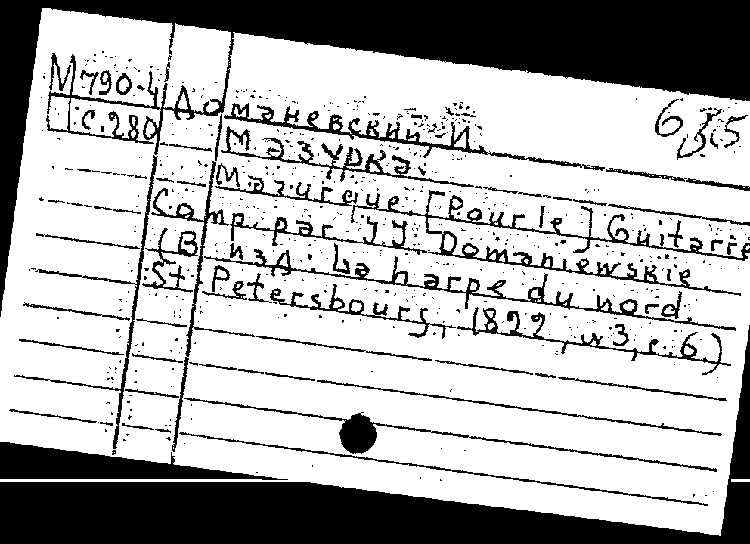 М790-4 Доманевский, И.
с.280
Мазурка.
Mazurque. [Pour le] Guitarre
Comp. par JJ Domaniewskie.
(В изд: La harpe du nord.
St. Petersbourg, 1822, N3, с.6.)